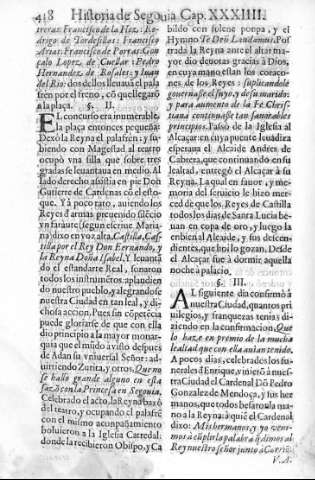 418 Historia de Segouia Cap. XXXIIII.
treras: Francisco de la Hoz: Ro-
drigo de Tordesillas: Francisco
Arias: Francisco de Porras: Gon-
çalo Lopez, de Cuellar: Pedro
Hernandez de Rosales; y Iuan
del Rio: dos dellos lleuauā el pala
frēn por el freno, cō que llegarō
a la plaça. §. II.
EL concurso era inumerable,
la plaça entonces pequeña:
Dexò la Reyna el palafrēn; y su-
biendo con Magestad al teatro
ocupò vna silla que sobre tres
gradas se leuantaua en medio. Al
lado derecho assistia en pie Don
Gutierre de Cardenas cō el esto-
que. Y à poco rato, auiendo los
Reyes d'armas preuenido silēcio
vn faraute (segun escriue Maria-
na) dixo en voz alta, Castilla, Cas-
tilla por el Rey Don Fernando, y
la Reyna Doña Isabel. Y leuantā
do el estandarte Real, sonaron
todos los instrumētos: aplaudien
do nuestro pueblo, y alegrandose
nuestra Ciudad en tan leal, y di-
chosa accion. Pues sin cōpetēcia
puede gloriarse de que con ella
dio principio a la mayor monar-
quia que el mūdo a visto despues
de Adan su vniuersal Señor: ad-
uirtiendo Zurita, y otros, Que no
se hallo grande alguno en esta
saz, ò con la Princesa en Segouia.
Celebrado el acto, la Reyna baxò
del teatro, y ocupando el palafrē
con el mismo acompañamiento
boluieron a la Iglesia Catredal:
donde la recibieron Obispo, y Ca
bildo con solene pompa, y el
Hymno Te Deū Laudamus. Pos-
trada la Reyna ante el altar ma-
yor dio deuotas gracias à Dios,
en cuya mano estan los coraço-
nes de los Reyes:
y para aumento de la Fè Chris-
tiana continuasse tan fauorables
principios. Passò de la Iglesia al
Alcaçar en cuya puente leuadiza
esperaua el Alcaide Andres de
Cabrera, que continuando en su
lealtad, entregò el Alcaçar à su
Reyna. La qual en fauor, y me-
moria del seruicio le hizo merced
de que los Reyes de Castilla
todos los dias de Santa Lucia be-
uan en copa de oro, y luego la
embien al Alcaide, y sus decen-
dientes, que hoi lo gozan. Desde
el Alcaçar fue à dormir aquella
noche a palacio.
§. III.
AL siguiente dia confirmò à
nuestra Ciudad, quantos pri
uilegios, y franquezas tenia: di-
ziendo en la confirmacion, Que
lo haze en premio de la mucha
lealtad que con ella auian tenido.
A pocos dias, celebrados los fu-
nerales d'Enrique, vinierō à nues-
tra Ciudad el Cardenal Dō Pedro
Gonzalez de Mendoça, y sus her
manos, que todos besarō la ma-
no a la Reyna: à quiē el Cardenal
dixo: Mis hermanos, y yo veni-
mos à cūplir la palabra q̄ dimos al
Rey nuestro señor junto a Carriō:
V. A.